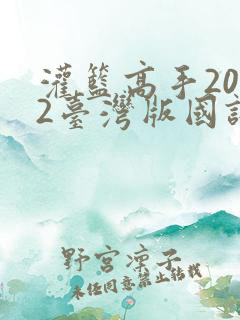 灌籃高手20
2臺灣版國語
野宮凜子
未任同意禁止转载